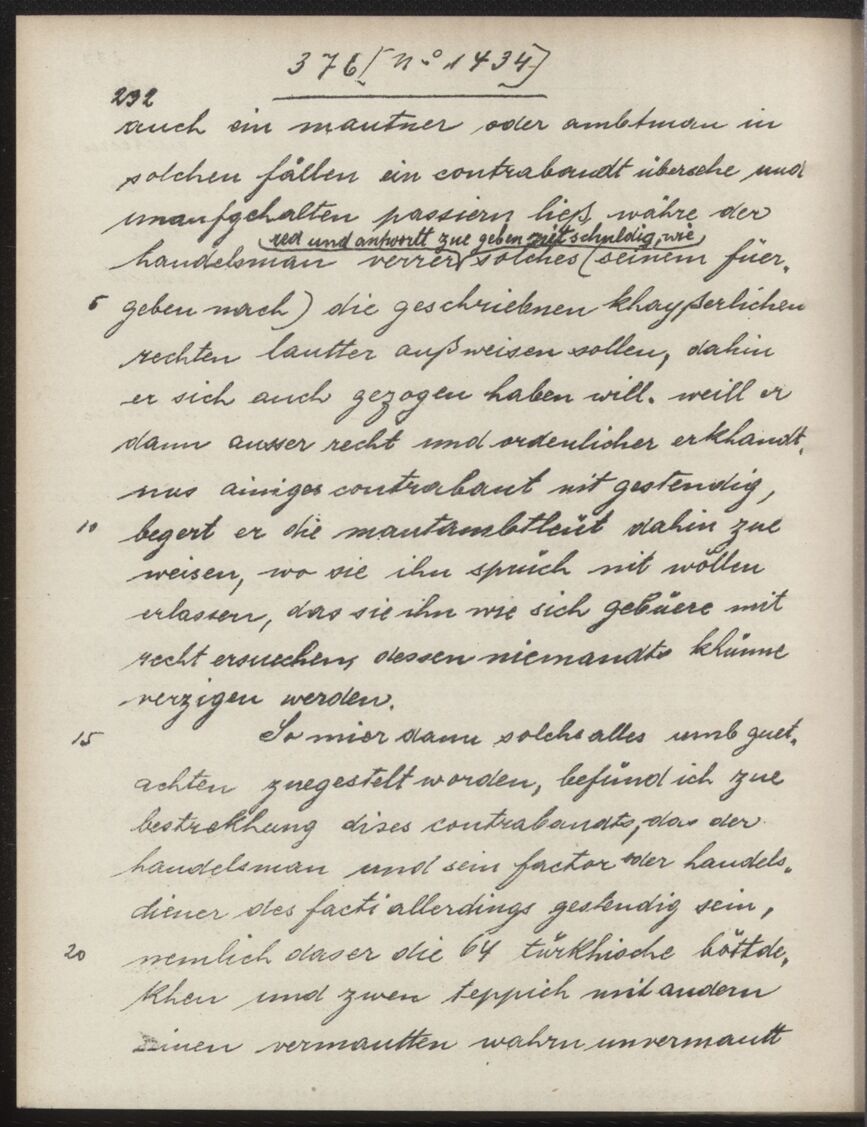 376 [No 1434]
232
auch ein mautner oder ambtman in
solchen fällen ein contrabandt übersehe und
unaufgehalten passiern ließ, währe der
red und antwortt zue geben nit schuldig, wie
handelsman verrer solches (seinem füer-
5 geben nach) die geschriebnen khayßerlichen
rechten lautter außweisen sollen, dahin
er sich auch gezogen haben will. weill er
dann ausser recht und ordenlicher erkhandt-
nus ainiges contrabant nit gestendig,
10 begert er die mautambtleüt dahin zue
weisen, wo sie ihn sprüch nit wöllen
erlassen, das sie ihn wie sich gebüere mit
recht ersuechen, dessen niemandts khünne
verzigen werden.
15 So mier dann solches alles umb guet-
achten zuegestelt worden, befünd ich zue
bestrekhung dises contrabandts, das der
handelsman und sein factor oder handels-
diener des facti allerdings gestendig sein,
20 nemlich das er die 64 türkhische böttde-
khen und zwen teppich mit andern
seinen vermautten wahrn unvermautt